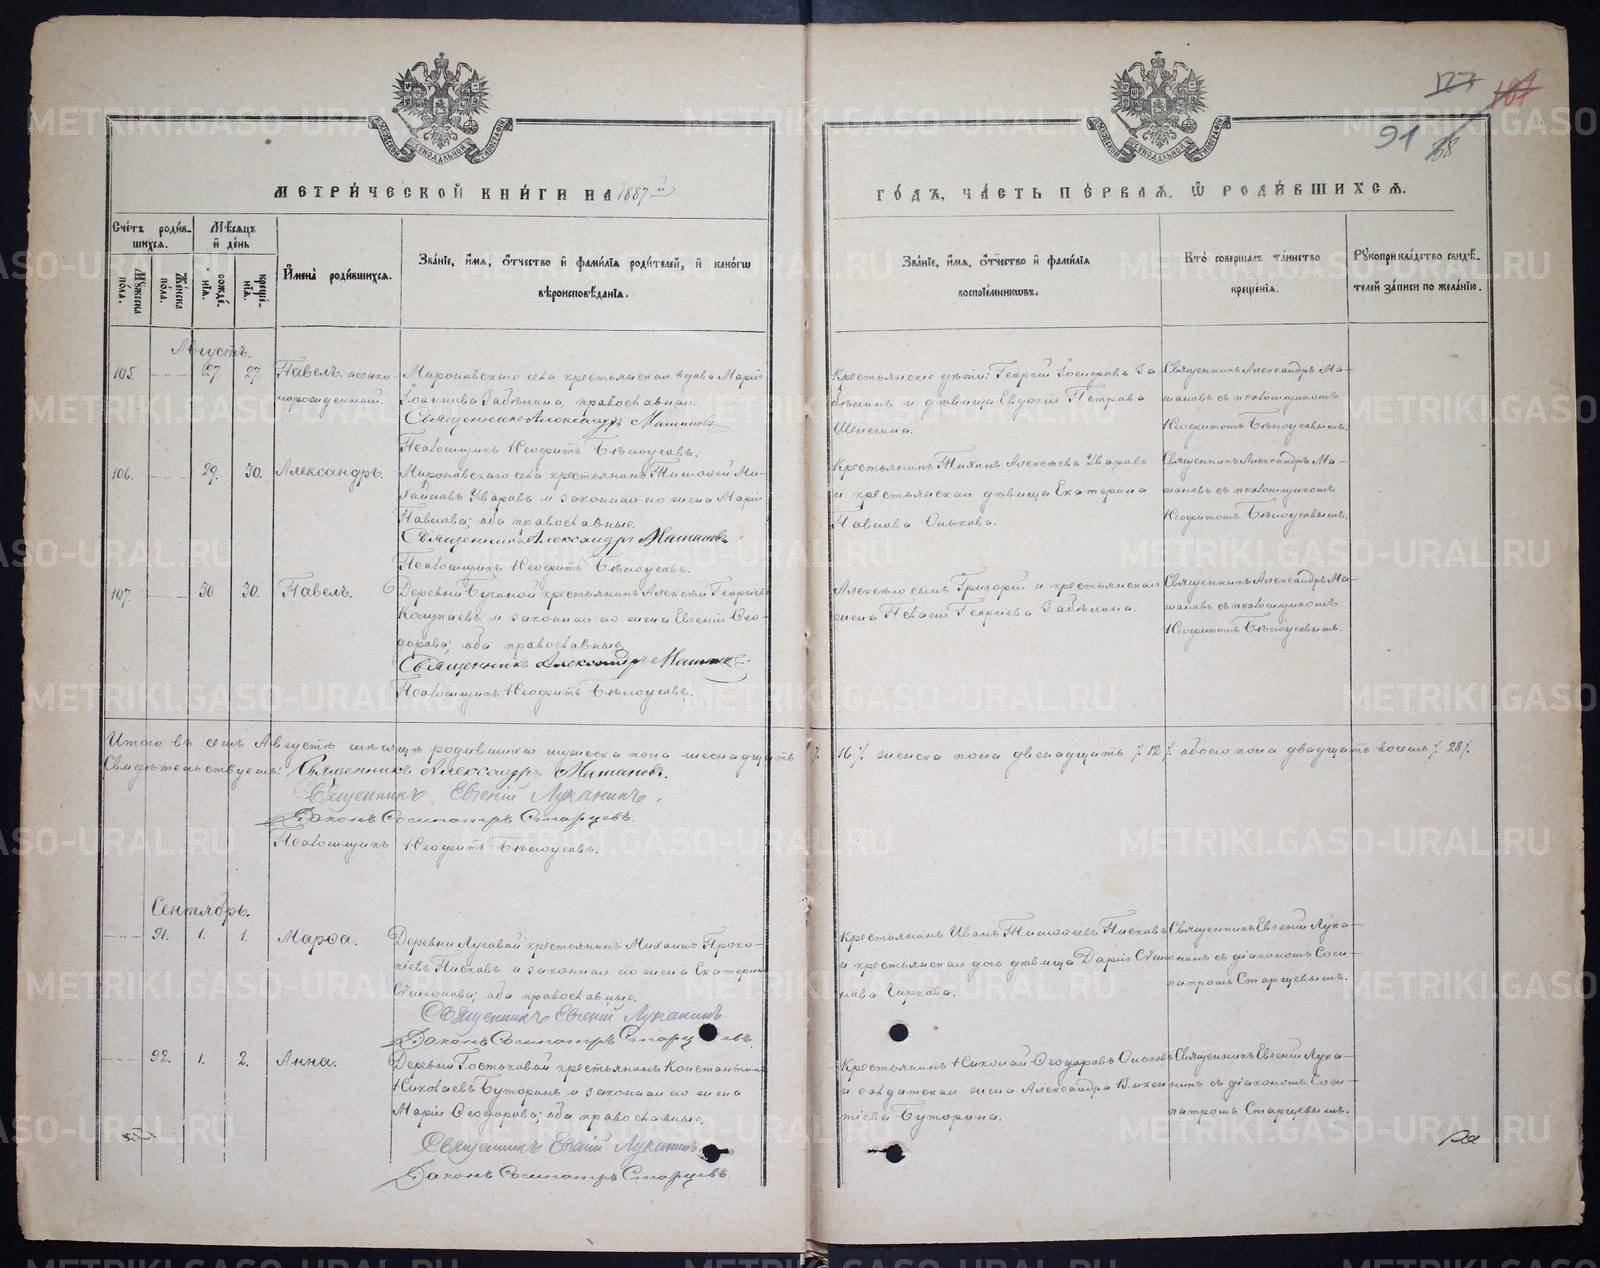 127 167
91 68
МЕТРИ́ЧЕСКОЙ КНИ́ГИ НА 1887й
ГО́ДЪ, ЧА́СТЬ ПЕ́РВАЯ, Ѡ РОДИ́ВШИХСЯ.
Сче́тъ роди́в-
шихся.
Мѣ́сяцъ
и де́нь
Му́жеска
по́ла.
Же́нска
по́ла.
рожде́-
нія.
креще́-
нія.
Имена̀ роди́вшихся.
Зва́ніе, и́мя, о́тчество и фами́лія роди́телей, и како́гѡ
вѣроисповѣ́данія.
Зва́ніе, и́мя, о́тчество и фами́лія
воспріе́мниковъ.
Кто̀ соверша́лъ та́инство
креще́нія.
Рꙋкоприкла́дство свидѣ́-
телей за́писи по жела́нію.
Августъ.
105. 27. 27. Павелъ. незако-
норожденный.
Мироновскаго села крестьянская вдова Марія
Іоаннова Забѣлина, православная.
Священникъ Александръ Матановъ
Псаломщикъ Неофитъ Бѣлоусовъ.
Крестьянскіе дѣти: Георгій Іосифовъ За-
бѣлинъ и дѣвица Евдокія Петрова
Шелегина.
Священникъ Александръ Ма-
тановъ съ псаломщикомъ
Неофитомъ Бѣлоусовымъ.
106. 29. 30. Александръ.
Мироновскаго села крестьянинъ Тимоѳей Ми-
хайловъ Уваровъ и законная его жена Марія
Павлова; оба православные.
Священникъ Александръ Матановъ
Псаломщикъ Неофитъ Бѣлоусовъ.
Крестьянинъ Тихонъ Алексѣевъ Уваровъ
и крестьянская дѣвица Екатерина
Павлова Олькова.
Священникъ Александръ Ма-
тановъ съ псаломщикомъ
Неофитомъ Бѣлоусовымъ.
107. 30 30. Павелъ.
Деревни Бучиной крестьянинъ Алексѣй Георгіевъ
Колупаевъ и законная его жена Евгенія Ѳео-
дорова; оба православные
Священникъ Александръ Матановъ
Псаломщикъ Неофитъ Бѣлоусовъ.
Алексѣя сынъ Григорій и крестьянская
жена Пелагія Георгіева Забѣлина.
Священникъ Александръ Ма-
тановъ съ псаломщикомъ
Неофитомъ Бѣлоусовымъ.
Итого въ семъ Августѣ мѣсяцѣ родившихся мужеска пола шестнадцать /. 16/. женска пола двенадцать /. 12/. обоего пола двадцать восемь /. 28/.
Свидѣтельствуемъ: Священникъ Александръ Матановъ.
Священникъ Евгеній Луканинъ.
Діаконъ Сосипатръ Старцевъ.
Псаломщикъ Неофитъ Бѣлоусовъ.
Сентябрь.
91. 1. 1. Марѳа.
Деревни Луговой крестьянинъ Михаилъ Проко-
піевъ Писковъ и законная его жена Екатерина
Симонова; оба православные.
Священникъ Евгеній Луканинъ
Діаконъ Сосипатръ Старцевъ.
Крестьянинъ Иванъ Тимоѳеевъ Писковъ
и крестьянская дочь дѣвица Дарія Симо-
нова Чиркова.
Священникъ Евгеній Лука-
нинъ съ діакономъ Соси-
патромъ Старцевымъ.
92. 1. 2. Анна.
Деревни Гостьковой крестьянинъ Константинъ
Николаевъ Буторинъ и законная его жена
Марія Ѳеодорова; оба православные.
Священникъ Евгеній Луканинъ
Діаконъ Сосипатръ Старцевъ.
Крестьянинъ Николай Ѳеодоровъ Ольковъ
и солдатская жена Александра Викен-
тіева Буторина.
Священникъ Евгеній Лука-
нинъ съ діакономъ Соси-
патромъ Старцевымъ.
METRIKI.GASO-URAL.RU